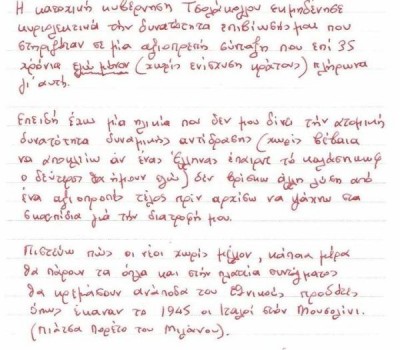 Η κατοχική κυβέρνηση Τσολάκογλου εκμηδένησε
κυριολεκτικά την δυνατότητα επιβίωσής μου που
στηριζόταν σε μία αξιοπρεπή σύνταξη που επί 35
χρόνια εγώ μόνον (χωρίς ενίσχυση κράτους) πλήρωνα
γι' αυτή.
Επειδή έχω μία ηλικία που δεν μου δίνει την ατομική
δυνατότητα δυναμικής αντίδρασης (χωρίς βέβαια
να αποκλείω αν ένας Έλληνας έπαιρνε το καλάσνικωφ
ο δεύτερος θα ήμουν εγώ) δεν βρίσκω άλλη λύση από
ένα αξιοπρεπές τέλος πριν αρχίσω να ψάχνω στα
σκουπίδια για την διατροφή μου.
Πιστεύω πως οι νέοι χωρίς μέλλον, κάποια μέρα
θα πάρουν τα όπλα και στην πλατεία συντάγματος
θα κρεμάσουν ανάποδα τους Εθνικούς προδότες
όπως έκαναν το 1945 οι Ιταλοί στον Μουσολίνι.
(Πιάτσα Πορέτο του Μιλάνου).